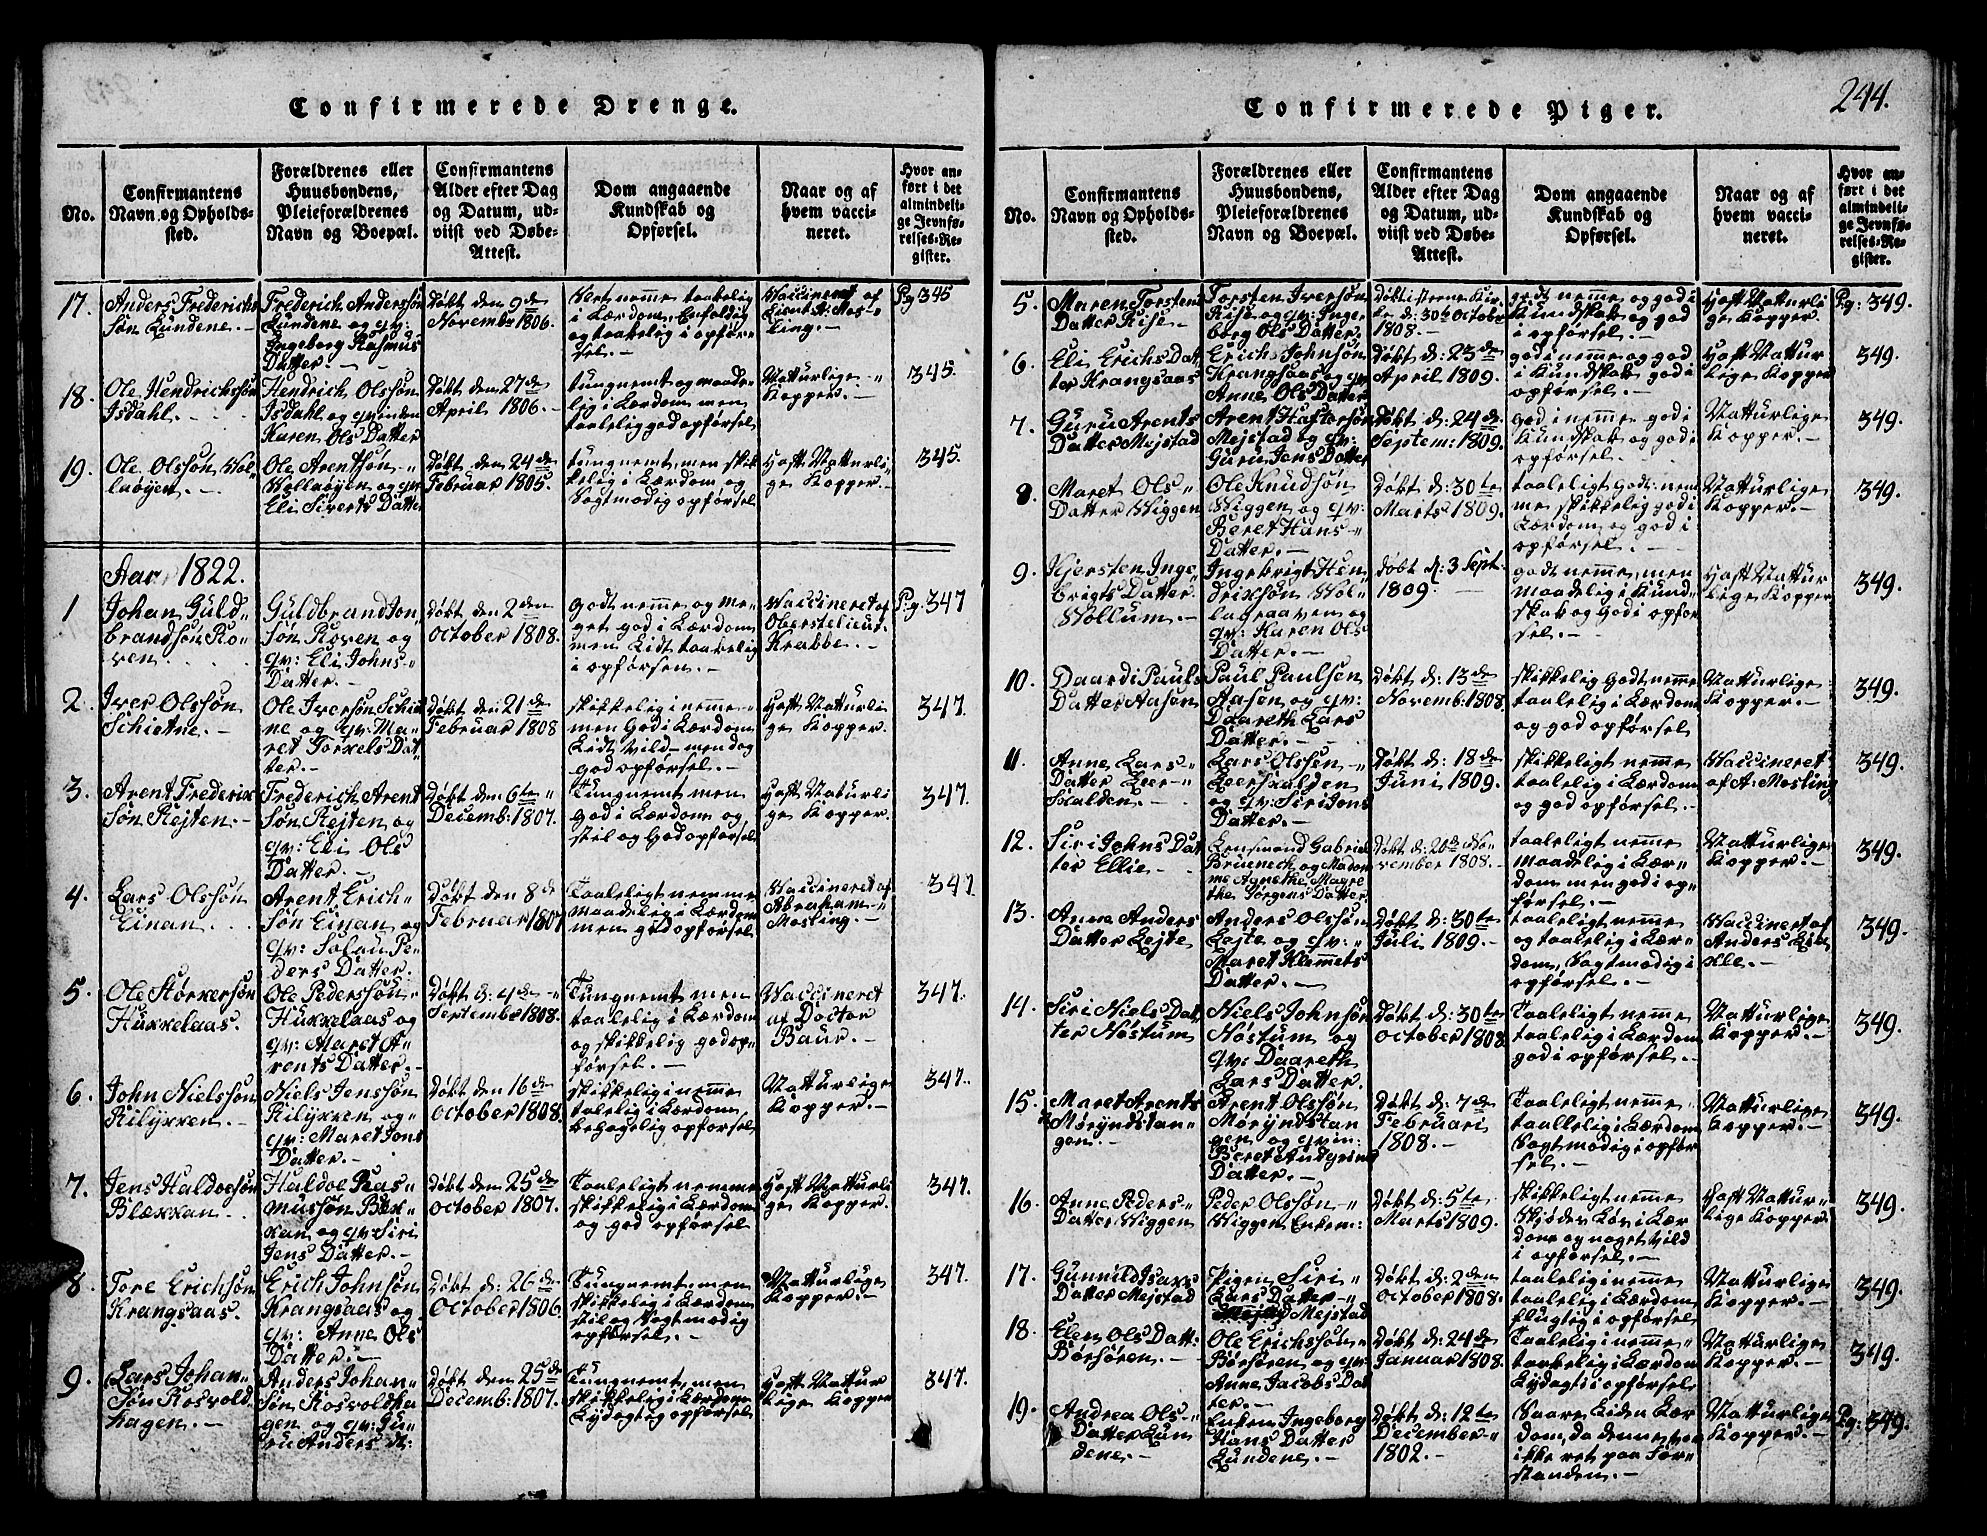 244.
Confirmerede Drenge.
No.
Confirmantens
Navn og Opholds-
sted.
Forældrenes eller
Huusbondens,
Pleieforældrenes
Navn og Boepæl.
Confirmantens
Alder efter Dag
og Datum, ud-
viist ved Døbe-
Attest.
Dom angaaende
Kundskab og
Opførsel.
Naar og af
hvem vacci-
neret.
Hvor an-
ført i det
almindeli-
ge Jevnfø-
relses-Re-
gister.
17.
Anders Frederichs
Søn Lundene.-
Frederich Anderssøn
Lundene og qv:
Ingeborg Rasmus
Datter.-
Døbt den 9de
Novembr 1806.
nemme taalelig
i Lærdom, Enfoldig
og taalelig i opfør-
sel.-
Vaccineret af
Lieut: A: Mos-
ling.-
Pg 345
18.
Ole Hendrichssøn
Isdahl.
Hendrich Olssøn
Isdahl og qvinden
Karen Ols Datter
Døbt den 27de
April 1806.-
tungnemt og maade-
lig i Lærdom men
taalelig god opførsel
Natturlige
Kopper.-
345.
19.
Ole Olssøn Vol-
labøyen.-
Ole Arentssøn
Vollabøyen og qv:
Eli Siverts Datter
Døbt den 24de
Februar 1805.
tungnemt, men skik-
kelig i Lærdom og
Sagtmodig opførsel
Haft Natturli
ge Kopper.-
345.
Aar 1822.
1
Johan Guld-
brandsøn Ro-
ven.
Guldbrand Jon
Søn Roven og
qv: Eli Johns-
Datter.-
Døbt den 2den
October 1808.
Godt nemme og me-
get god i Lærdom
men Lidt taakelig
i opførsen.-
Vaccineret af
Oberstelieut:
Krabbe.-
Pg: 347
2.
Iver Olssøn
Schietne.-
Ole Iversøn Schiet
ne og qv: Ma-
ret Torkels Dat
ter.-
Døbt den 21de
Februar 1808
skikkelig i nemme-
men God i Lærdom
Lidt Vild- men dog
god opførsel.-
Haft Naturli
ge Kopper.
347.
3.
Arent Frederik
Søn Rejten.-
Frederich Arent
Søn Rejten og
qv: Eli Ols
Datter.-
Døbt den 6te
Decemb: 1807.
Tungnemt men
god i Lærdom og
stil og God opførsel
Haft Naturli
ge Kopper.
347.
4.
Lars Olssøn
Einan.
Arent Erich-
Søn Einan og
qv: Salau Pe-
ders Datter.
Døbt den 8de
Februar 1807
Taaleligt nemme
maadelig i Lærdom
men god opførsel
Vaccineret af
Abraham
Mosling.-
347.
5.
Ole Størkersøn
Hukkelaas.
Ole Pederssøn
Hukkelaas og
qv: Maret A-
rents Datter.-
Døbt d: 4de
September 1808.
Tungnemt men
taalelig i Lærdom
og skikkelig god op-
førsel.-
Vaccineret
af Doctor
Baur.-
347.
6.
John Nielssøn
Rilykken.-
Niels Jenssøn
Rilykken og
qv: Maret Jons
Datter.-
Døbt den 16de
October 1808.
skikkelig i nemme
taalelig i Lærdom
behagelig opførsel
Natturlige
Kopper.-
347.
7.
Jens Haldoesøn
Blækkan.
Haldoe Ras-
mussøn Blek-
kan, og qv: Siri
Jens Datter.-
Døbt den 25de
October 1807.
Taaleligt nemme
skikkelig i Lærdom
og god opførsel
Haft Natturli
ge Kopper.
347.
8.
Tore Erichsøn
Krangsaas.
Erich Johnsøn
Krangsaas og
qv: Anne Ols
Datter.-
Døbt d: 26de
October 1806.
Tungnemt, men
skikkelig i Lærdom
stil og sagtmodig
opførsel.-
Natturlige
Kopper.-
347.
9.
Lars Johan-
Søn Rosvold
hagen.-
Anders Johan-
Søn Rosvoldha
gen og qv: Gu-
ru Anders D:
Døbt den 25de
Decemb: 1807.
Tungnemt, men
skikkelig i Lærdom
Lydagtig opførsel
Haft Nattur
lige Kopper
347.
Confirmerede Piger.
No.
Confirmantens
Navn og Opholds-
sted.
Forældrenes eller
Huusbondens,
Pleieforældrenes
Navn og Boepæl.
Confirmantens
Alder efter Dag
og Datum, ud-
viist ved Døbe-
Attest.
Dom angaaende
Kundskab og
Opførsel.
Naar og af
hvem vacci-
neret.
Hvor an-
ført i det
almindeli-
ge Jevnfø-
relses-Re-
gister.
5.
Maren Torstens
Datter Rise.-
Torsten Iversøn
Rise og qv: Inge
borg Ols Datter
d: 30te October
1808.-
godt nemme og god i
Kundskab og god
i opførsel.-
Haft Natturli
ge Kopper.
Pg: 349.
6.
Eli Erichs Dat
ter Krangsaas
Erich Johnsøn
Krangsaas og qv:
Anne Ols Datter
Døbt d: 23de
April 1809.
god i nemme og god
i Kundskab god i
opførsel.-
Haft Nattur
lige Kopper
349.
7.
Guru Arents
Datter Mejstad
Arent Haftorsøn
Mejstad og qv:
Guru Jens Datter
Døbt d: 24de
Septem: 1809.
god i nemme god i
Kundskab og god i
opførsel.-
Natturlige
Kopper.-
349.
8.
Maret Ols
Datter Viggen
Ole Knudsøn
Viggen, og qv:
Beret Hans-
Datter.-
Døbt d: 30te
Marts 1809.
taaleligt Godt nem
me skikkelig god i
Lærdom og god i
opførsel.-
Natturlige
Kopper.-
349.
9.
Kjersten Inge-
brigts Datter
Vollum.-
Ingebrigt Hen-
drikson Vol-
lagraaven og
qv: Karen Ols
Datter.-
Døbt d: 3 Sept.
1809.
godt nemme, men
maadelig i Kund-
skab og god i opfør
sel.-
Haft Nattur
lige Kopper
349.
10.
Daardi Pauls
Datter Aasen
Paul Paulsen
Aasen og qv:
Daareth Lars
Datter.-
Døbt d: 13de
Novemb: 1808.
skikkelig godt nemme
taalelig i Lærdom
og god opførsel
Natturlige
Kopper.-
349.
11.
Anne Lars-
Datter Leer-
skalden.-
Lars Olssøn
Leerskalden
og qv: Siri Jons
Datter.-
Døbt d: 18de
Juni 1809.
skikkeligt nemme
taalelig i Lærdom
og god opførsel.-
Vaccineret
af A: Mosling
349.
12.
Siri Johns Dat
ter Ellie.-
Lensmand Gabriel
Bruenech og Mada
me Agnethe Magre
the Jørgens Datter
Døbt d: 20de No-
vember 1808.-
taaleligt nemme
maadelig i Lær-
dom men god i op-
førsel.-
Natturlige
Kopper.-
349.
13.
Anne Anders
Datter Lejte
Anders Olssøn
Lejte og qv:
Maret Klemmets
Datter.-
Døbt d: 30te
Juli 1809.-
taaleligt nemme
og taalelig i Lær-
dom, Sagtmodig i
opførsel.-
Vaccineret af
Anders Lium
kle.
349.
14.
Siri Niels Dat
ter Nostum
Niels Johnsøn
Nøstum og
qv: Daareth
Lars Datter.
Døbt d: 30te
October 1808
Taaleligt nemme
taalelig i Lærdom
god i opførsel.-
Natturlige
Kopper.-
349.
15.
Maret Arents
Møryndstan-
gen.-
Arent Olssøn
Møryndstan
gen og qvin:
Beret Andgrims
Datter.-
Døbt d: 7de
Februari
1808.-
Taaleligt nemme
taallelig i Lærdom
Sagtmodig i opfør
sel.-
Natturlige
Kopper.-
349.
16.
Anne Peders-
Datter Viggen
Peder Olssøn
Viggen Enkem:
Døbt d: 5te
Marts 1809.
skikkeligt nemme
Skjødes Løs i Lær
dom og noget Vild
i opførsel.-
Haft Nattur-
lige Kopper.
349.
17.
Gunnild Isaks
Datter Mejstad
Pigen Siri
Lars Datter
Mejstad
Døbt d: 2den
October 1808.
taalelig i nemme
taalelig i Lærdom
flugtig i opførsel
Natturlige
Kopper.-
349.
18.
Elen Ols Datt:
Børsøren.-
Ole Erichssøn
Børsøren, og qv:
Anne Jacobs Dat
ter.-
Døbt d: 24de
Januar 1808.
Taalelig i nemme
taakelig i Lærdom
Lydagtig i opførsel
Natturlige
Kopper.-
349.
19.
Andrea Ols-
Datter Lun
dene.-
Enken Ingeborg
Hans Datter
Lundene.-
Døbt d: 12te
December
1802.-
Saare Liden Lær
dom, da denne var
ikke ret paa For-
standen.-
Natturlige
Kopper.-
Pg: 349.